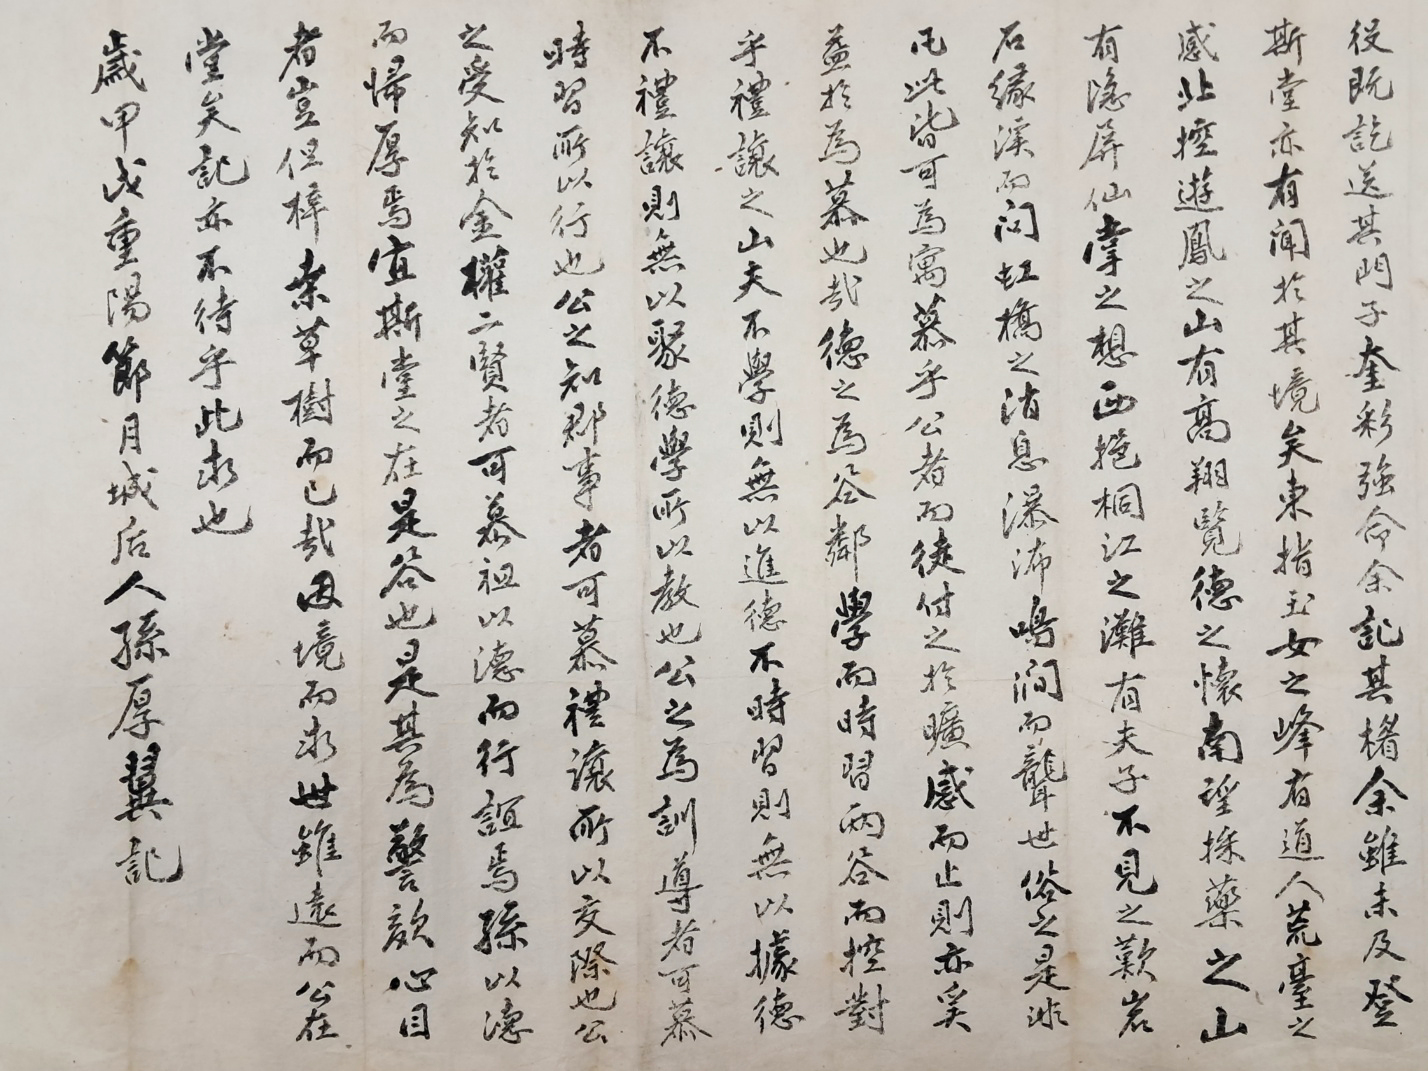 役既訖送其門子奎彩強命余記其楣余雖未及登
斯堂亦有聞於其境矣東指玉女之峰有道人荒臺之
感北控遊鳳之山有高翔覽德之懷南望採藥之山
有隱屏仙掌之想西挹桐江之灘有夫子不見之歎岩
石緣溪而問虹橋之消息瀑沛鳴澗而聾世俗之是非
凡此皆可為寓慕乎公者而徒付之於曠感而止則亦奚
益於為慕也哉德之為谷鄰學而時習兩谷而控對
乎禮讓之山夫不學則無以進德不時習則無以據德
不禮讓則無以聚德學所以教也公之為訓導者可慕
時習所以行也公之知郡事者可慕禮讓所以交際也公
之受知於金權二賢者可慕祖以德而行誼焉孫以德
而歸厚焉宜斯堂之在是谷也是其為警欬心目
者豈但梓桑草樹而已哉因境而求世雖遠而公在
堂矣記亦不待乎此求也
歲甲戌重陽節月城后人孫厚翼記